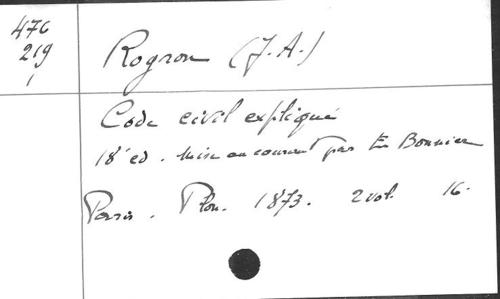 476
219
1
Rogron (J.A.)
Code civil expliqué
18e ed. Mise au courant par Ed. Bonnier
Paris. Plon. 1873. 2 vol. 16.